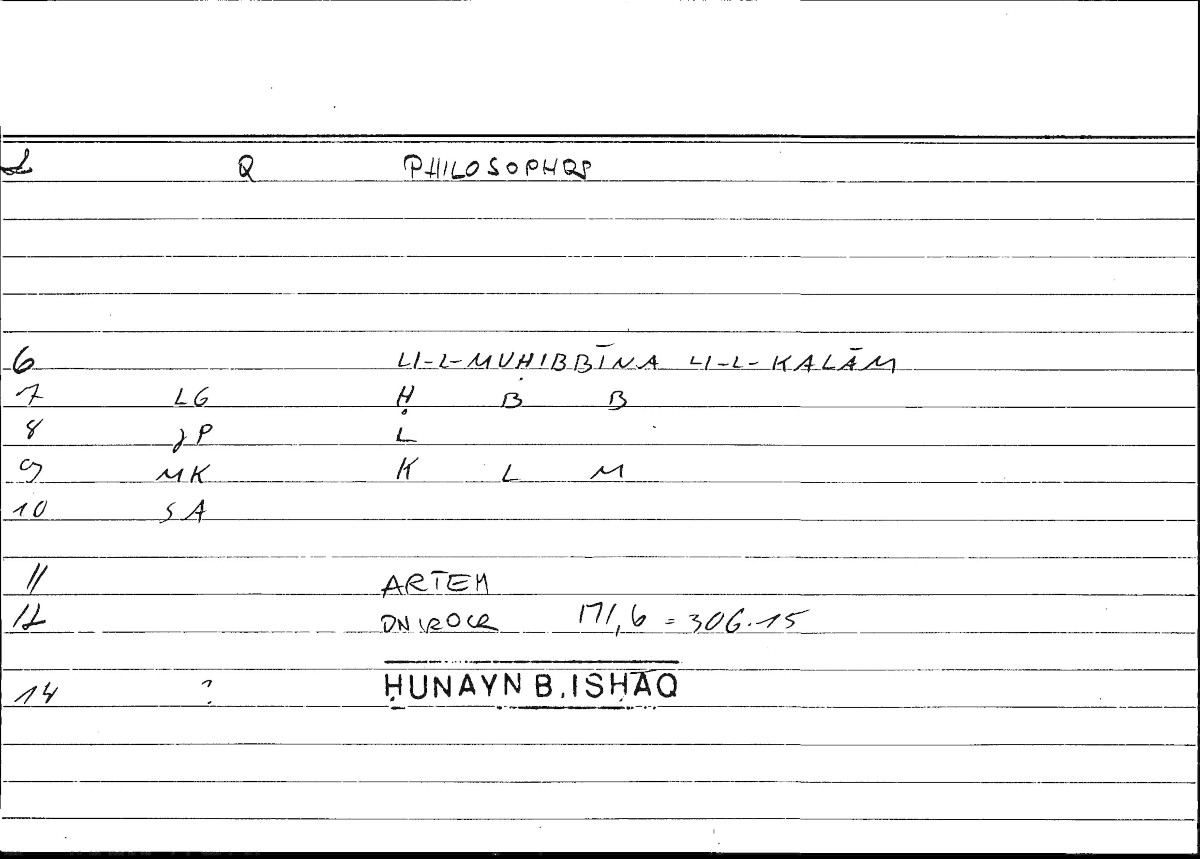 Q PHILOSOPHOS
6 LI-L-MUḤIBBĪNA LI-L-KALĀM
7 LG Ḥ B B
8 JP L
9 MK K L M
10 SA
11 ARTEM
12 ONIROCR 171,6 = 306.15
14 ? ḤUNAYN B. ISḤĀQ